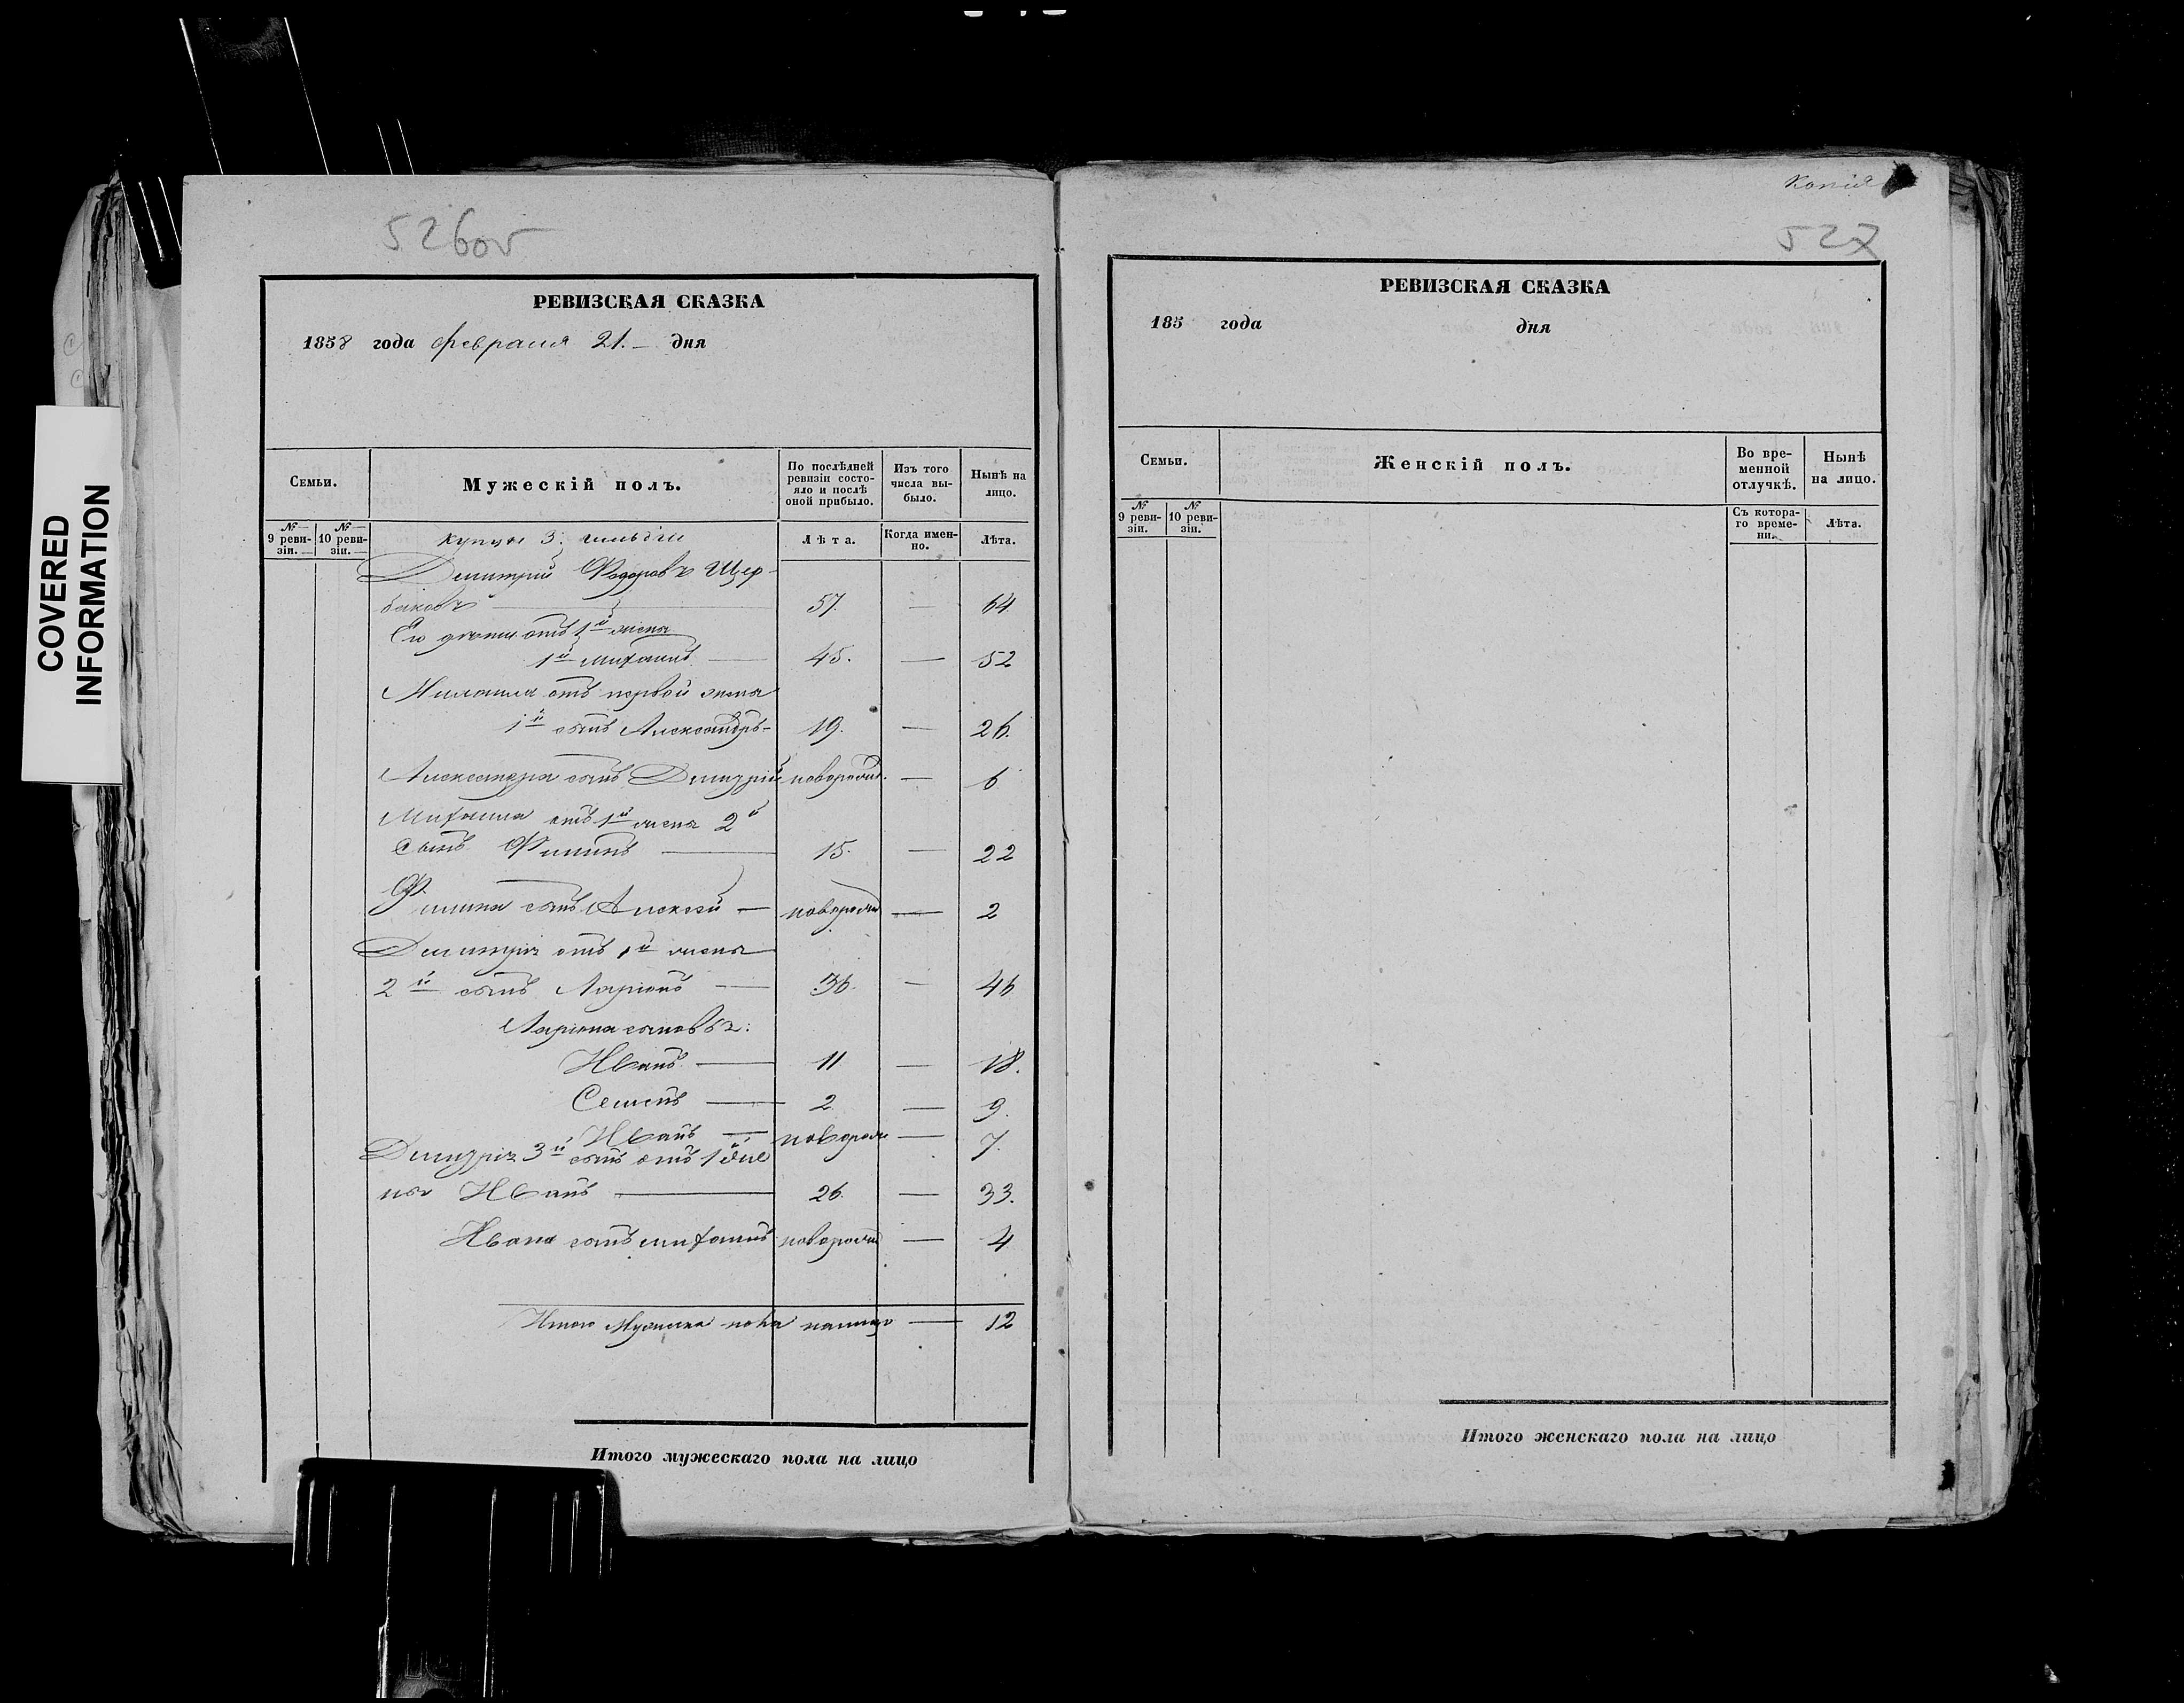 COVERED
INFORMATION
526об
РЕВИЗСКАЯ СКАЗКА
1858 года февраля 21.- дня
Семьи.
Мужескій полъ.
По послѣдней ревизіи состояло и послѣ оной прибыло.
Изъ того числа выбыло.
Нынѣ на лицо.
№ 9 ревизіи.
№ 10 ревизіи.
Лѣта.
Когда именно.
Лѣта.
купцы 3. гильдіи
Дмитрій Федоровъ Щер-
баковъ — 57. — 64
Его дѣти отъ 1й жены
1й Михаилъ — 45. — 52
Михаила отъ первой жены
1й сынъ Александръ - 19. — 26.
Александра сынъ Дмитрій новорожд. — 6
Михаила отъ 1й жены 2й
сынъ Филипъ — 15. — 22
Филипа сынъ Алексей — новорожд — 2
Дмитрія отъ 1й жены
2й сынъ Ларіонъ — 36. — 46
Ларіона сыновья:
Иванъ — 11 — 18.
Семенъ — 2 — 9.
Иванъ — новорож — 7.
Дмитрія 3й сынъ отъ 1й же
ны Иванъ — 26. — 33.
Ивана сынъ Михаилъ новорожд — 4
Итого Мужеска пола налицо — 12
Итого мужескаго пола на лицо
Копія
527
РЕВИЗСКАЯ СКАЗКА
185 года дня
Семьи.
Женскій полъ.
Во временной отлучкѣ.
Нынѣ на лицо.
№ 9 ревизіи.
№ 10 ревизіи.
Съ котораго времени.
Лѣта.
Итого женскаго пола на лицо